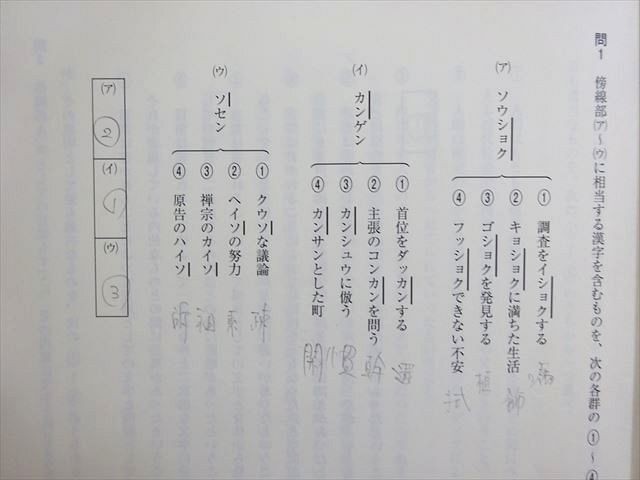 問1 傍線部㋐~㋒に相当する漢字を含むものを、次の各群の①~④
㋐ ソウショク
① 調査をイショクする
② キョショクに満ちた生活
③ ゴショクを発見する
④ フッショクできない不安
嘱
飾
植
拭
㋑ カンゲン
① 首位をダッカンする
② 主張のコンカンを問う
③ カンシュウに倣う
④ カンサンとした町
還
幹
慣
閑
㋒ ソセン
① クウソな議論
② ヘイソの努力
③ 禅宗のカイソ
④ 原告のハイソ
疎
素
祖
訴
㋐ ②
㋑ ①
㋒ ③